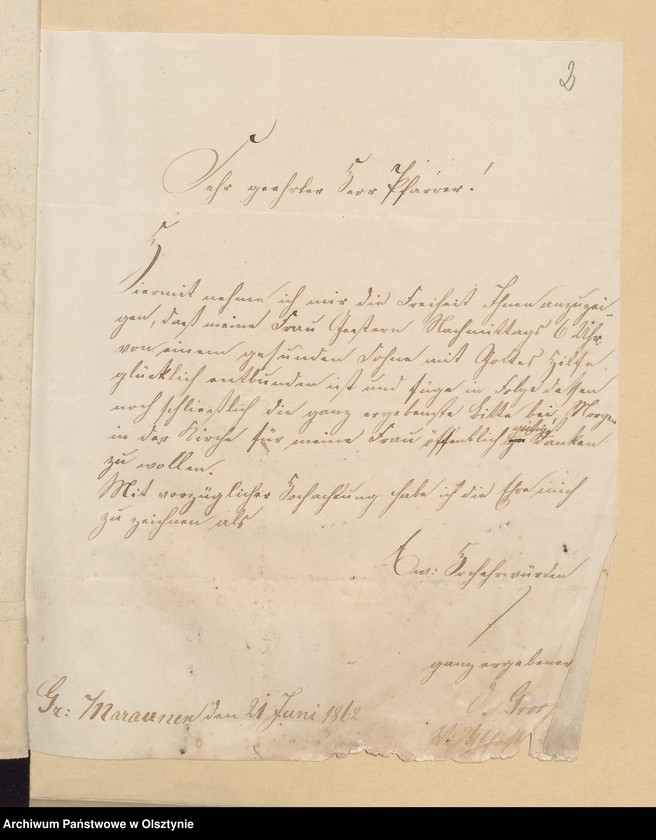 2
Sehr geehrter Herr Pfarrer!
Hiermit nehme ich mir die Freiheit Ihnen anzuzei-
gen, daß meine Frau Gestern Nachmittags 6 Uhr
von einem gesunden Sohne mit Gottes Hilfe
glücklich entbunden ist und füge in Folge dessen
noch schließlich die ganz ergebenste Bitte bei, Morgen
in der Kirche für meine Frau öffentlich gütigst danken
zu wollen.
Mit vorzüglicher Hochachtung habe ich die Ehre mich
zu zeichnen als
Ew: Hochehrwürden
ganz ergebener
Gr: Maraunen den 21 Juni 1862
Archiwum Państwowe w Olsztynie